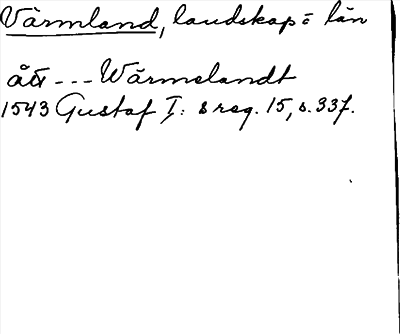 Värmland, landskap = län
åt --- Wärmelandt
1543 Gustaf I: s reg. 15, s. 337.